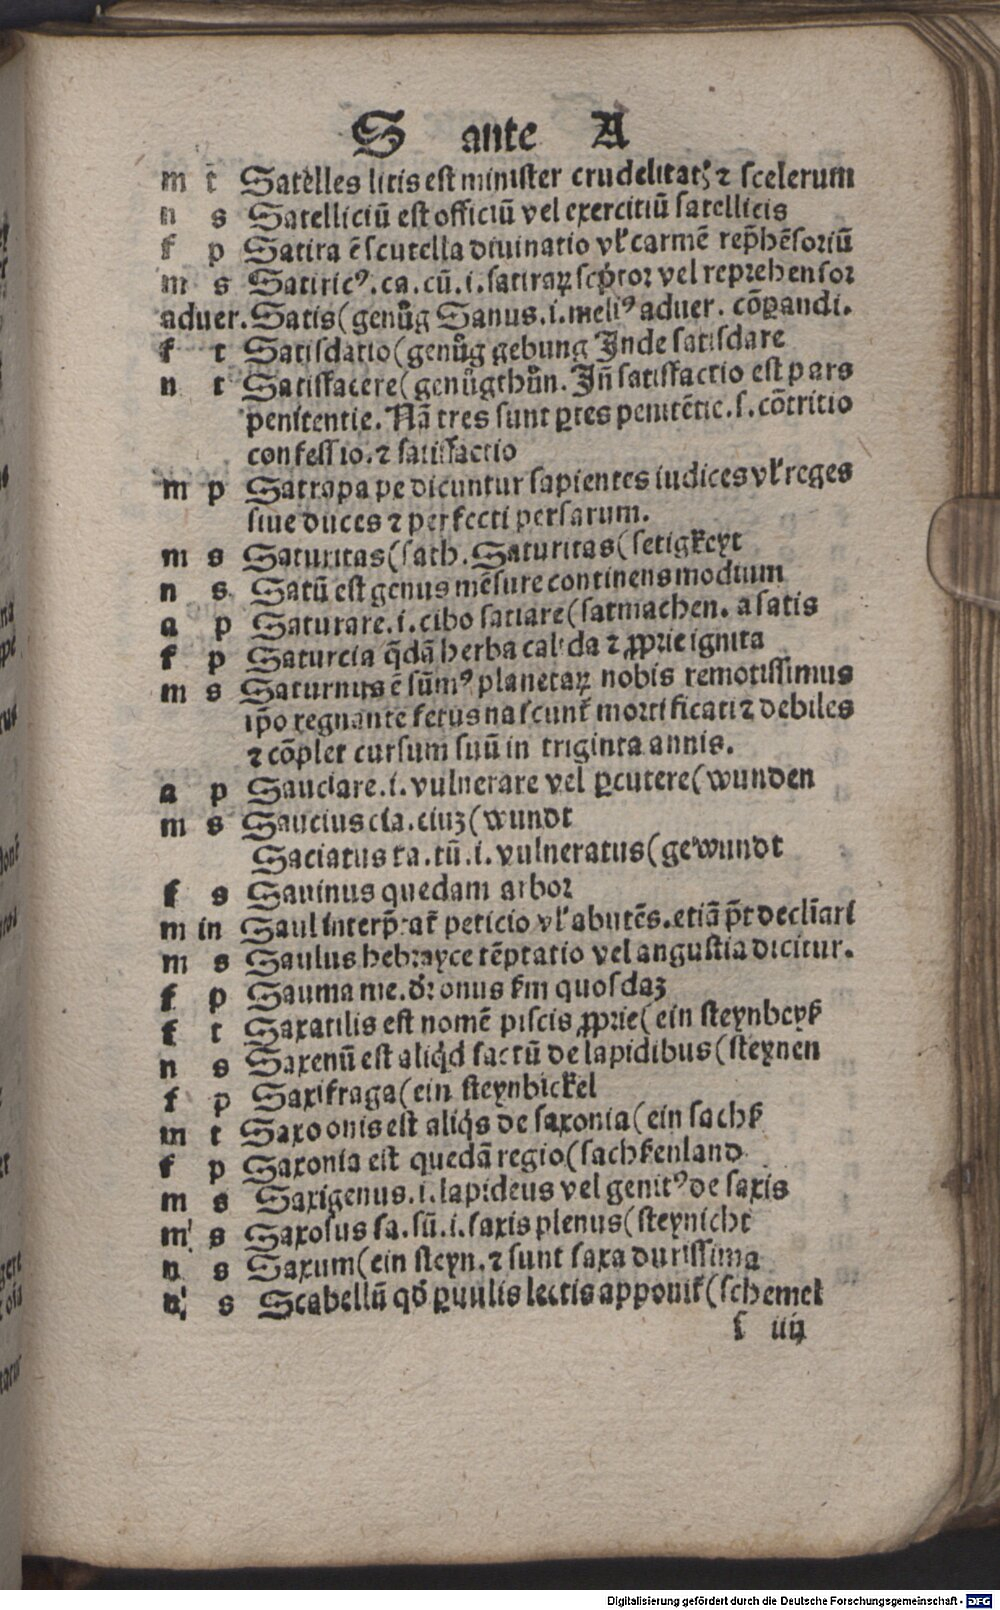 S ante A
m t Satelles litis est minister crudelitatꝭ ⁊ scelerum
n s Satelliciū est officiū vel exercitiū satellitis
f p Satira ē scutella diuinatio vl̓ carmē rep̄hēsoriū
m s Satiricꝰ. ca. cū. i. satiraꝝ scp̄tor vel reprehensor
aduer. Satis (genůg Sanus. i. meliꝰ aduer. cōꝑandi.
f t Satisdatio (genůg gebung Inde satisdare
n t Satisfacere (genůgthůn. Iñ satisfactio est pars
penitentie. Nā tres sunt ꝑtes penitētie. s. cōtritio
confessio. ⁊ satisfactio
m p Satrapa pe dicuntur sapientes iudices vl̓ reges
siue duces ⁊ perfecti persarum.
m s Saturitas (sath. Saturitas (setigkeyt
n s Satū est genus mēsure continens modium
a p Saturare. i. cibo satiare (satmachen. a satis
f p Satureia q̄dā herba calida ⁊ ꝓprie ignita
m s Saturnus ē sūmꝰ planetaꝝ nobis remotissimus
ip̄o regnante fetus nascunt᷑ mortificati ⁊ debiles
⁊ cōplet cursum suū in triginta annis.
a p Sauciare. i. vulnerare vel ꝑcutere (wunden
m s Saucius cia. ciuꝫ (wundt
Saciatus ta. tū. i. vulneratus (gewundt
f s Sauinus quedam arbor
m in Saul interp̄tat᷑ peticio vl̓ abutēs. etiā p̄t decli̅ari
m s Saulus hebrayce tēptatio vel angustia dicitur.
f p Sauma me. d̓r onus s̓m quosdaꝫ
f t Saxatilis est nomē piscis ꝓprie (ein steynbeyß
n s Saxenū est aliqd̓ factū de lapidibus (steynen
f p Saxifraga (ein steynbickel
m t Saxo onis est aliq̓s de saxonia (ein sachß
f p Saxonia est quedā regio (sachßenland
m s Saxigenus. i. lapideus vel genitꝰ de saxis
m s Saxosus sa. sū. i. saxis plenus (steynicht
n s Saxum (ein steyn. ⁊ sunt saxa durissima
n s Scabellū qd̓ ꝑuulis lectis apponit᷑ (schemel
s iiij
Digitalisierung gefördert durch die Deutsche Forschungsgemeinschaft - DFG